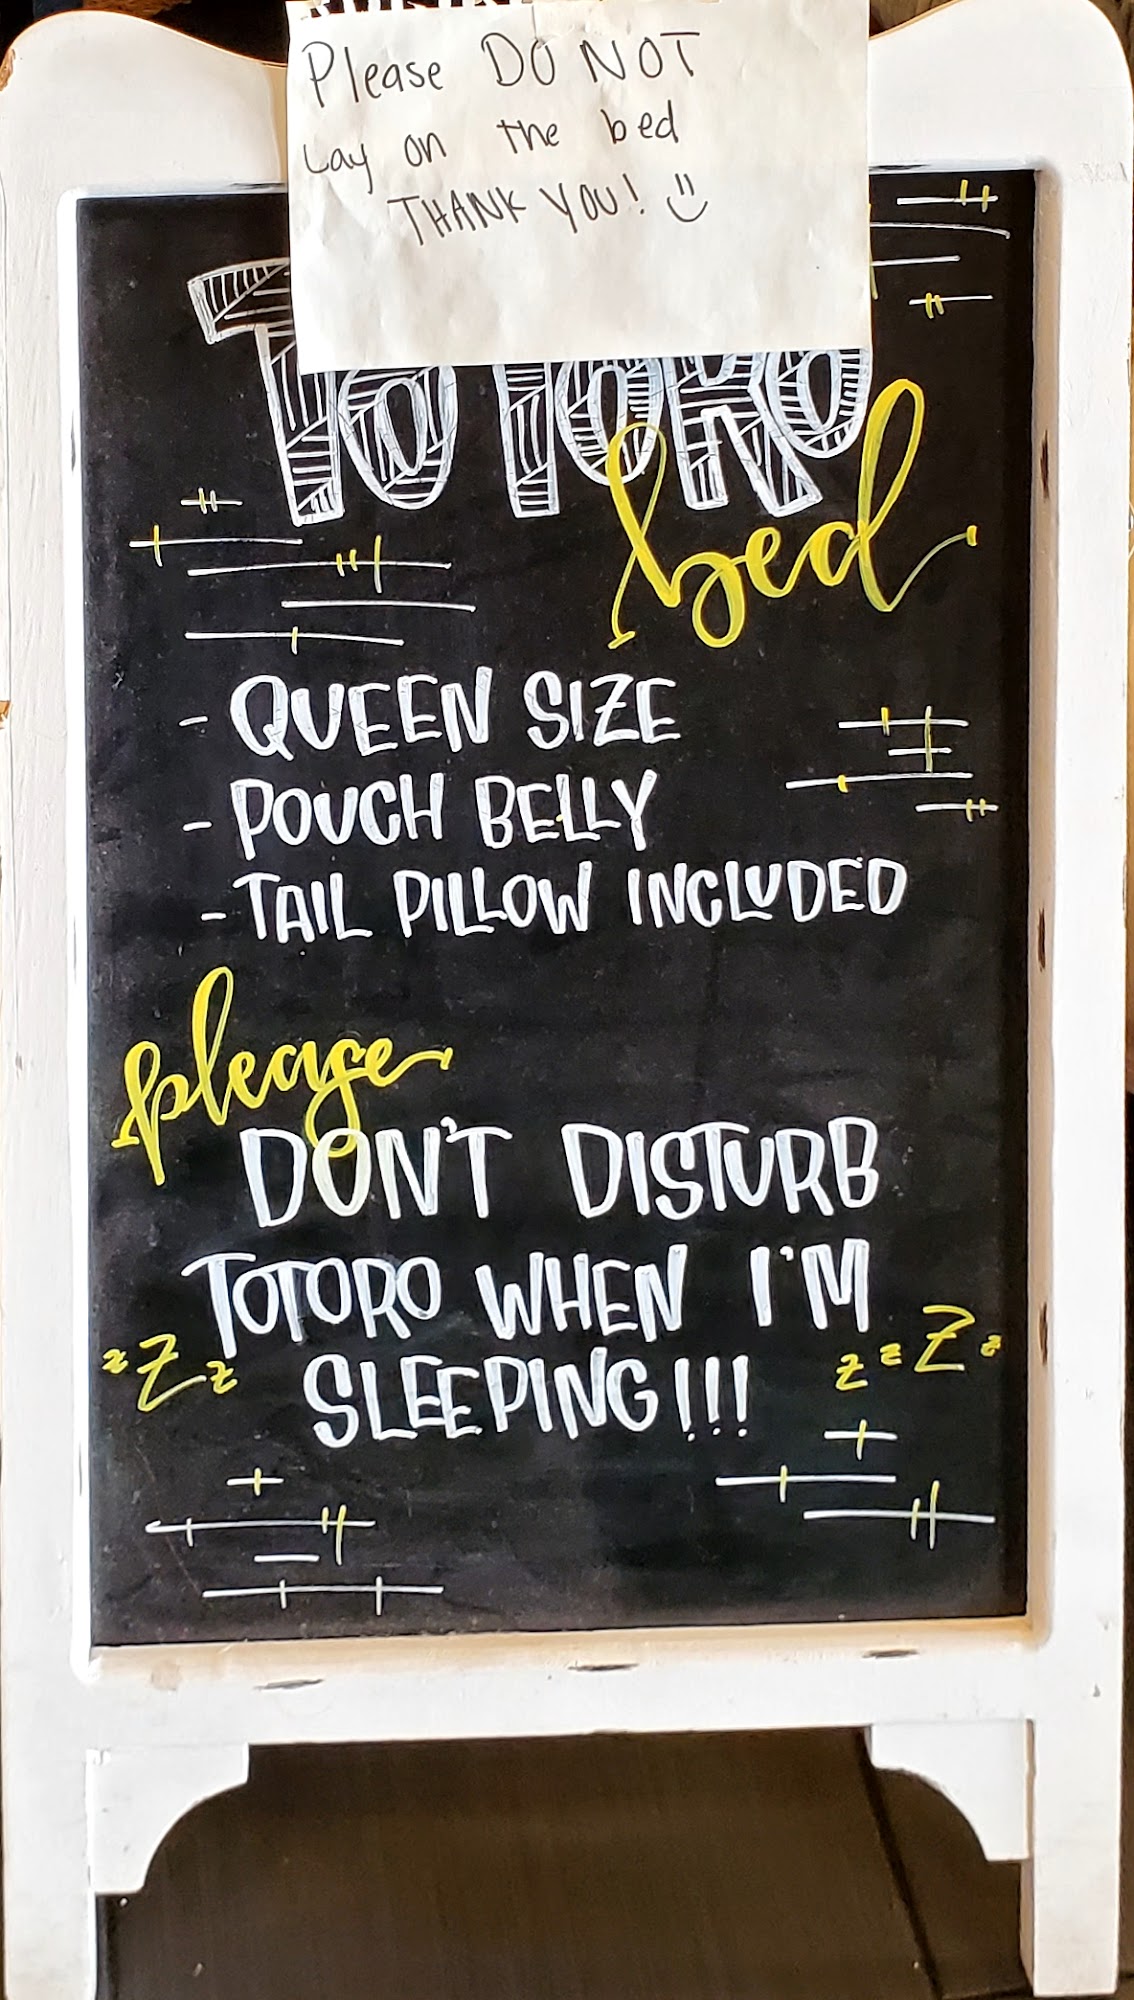 Please DO NOT
Lay on the bed
THANK YOU!
TOTORO
bed
- QUEEN SIZE
- POUCH BELLY
- TAIL PILLOW INCLUDED
please
DON'T DISTURB
TOTORO WHEN I'M
SLEEPING!!!
z Z z
z z Z z